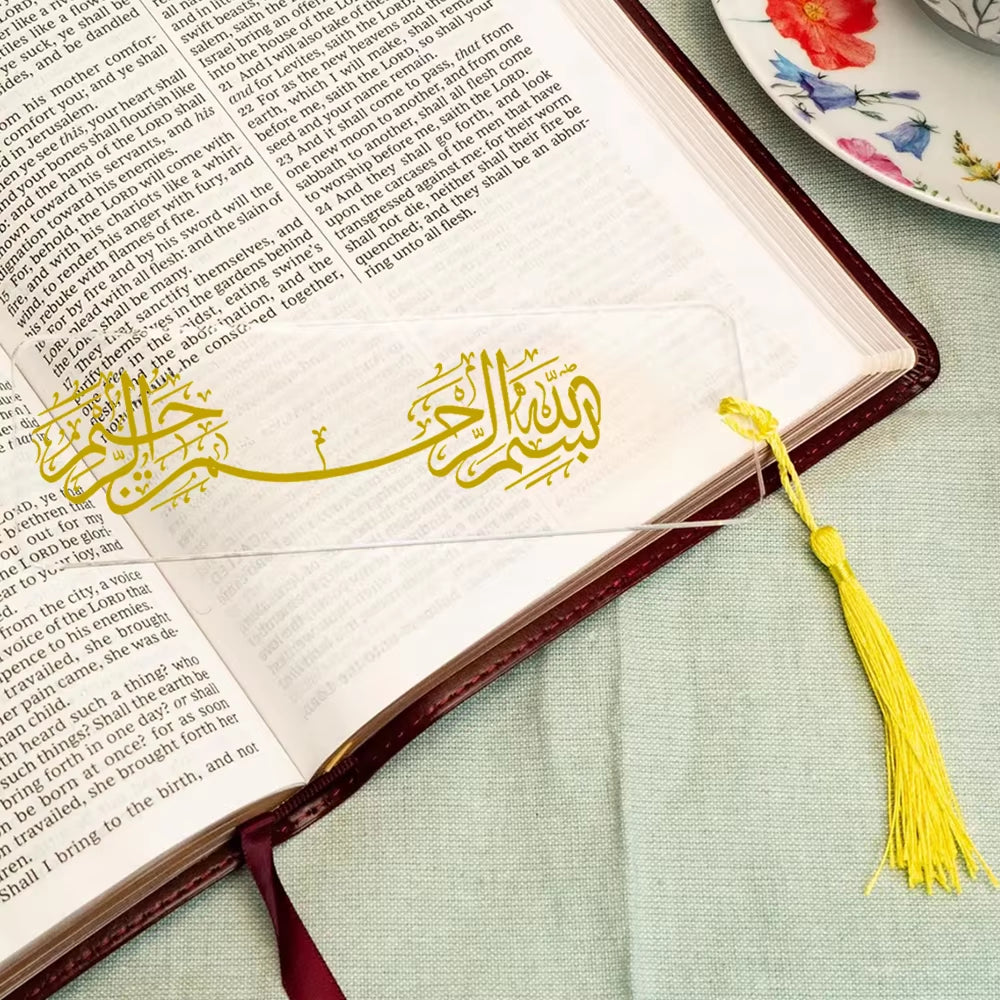 ye suck, ye shall be
and be dandled
his mother comfort-
comfort you; and ye shall
in Jerusalem.
ye see this, your heart shall
and your bones shall flourish like
the hand of the LORD shall
toward his servants, and his
toward his enemies.
For, behold, the LORD will come with
and with his chariots like a whirl-
wind, to render his anger with fury, and
his rebuke with flames of fire.
For by fire and by his sword will the
LORD plead with all flesh: and the slain of
shall be many.
17 They sanctify themselves, and
themselves in the gardens behind
one in the midst, eating swine's
the abomination, and the
be consumed together,
swift beasts,
salem, saith the
Israel bring an offering
into the house of the LORD.
21 And I will also take of
and for Levites, saith the LORD.
22 For as the new heavens and the new
earth, which I will make, shall remain
before me, saith the LORD, so shall your
seed and your name remain.
23 And it shall come to pass, that from
one new moon to another, and from one
sabbath to another, shall all flesh come
to worship before me, saith the LORD.
24 And they shall go forth, and look
upon the carcases of the men that have
transgressed against me: for their worm
shall not die, neither shall their fire be
quenched; and they shall be an abhor-
ring unto all flesh.
بسم الله الرحمن الرحيم
LORD, ye that
brethren that
you out for my
LORD be glori-
to your joy, and
from the city, a voice
voice of the LORD that
to his enemies.
travailed, she brought
her pain came, she was de-
child.
hath heard such a thing? who
such things? Shall the earth be
bring forth in one day? or shall
be born at once? for as soon
travailed, she brought forth her
Shall I bring to the birth, and not